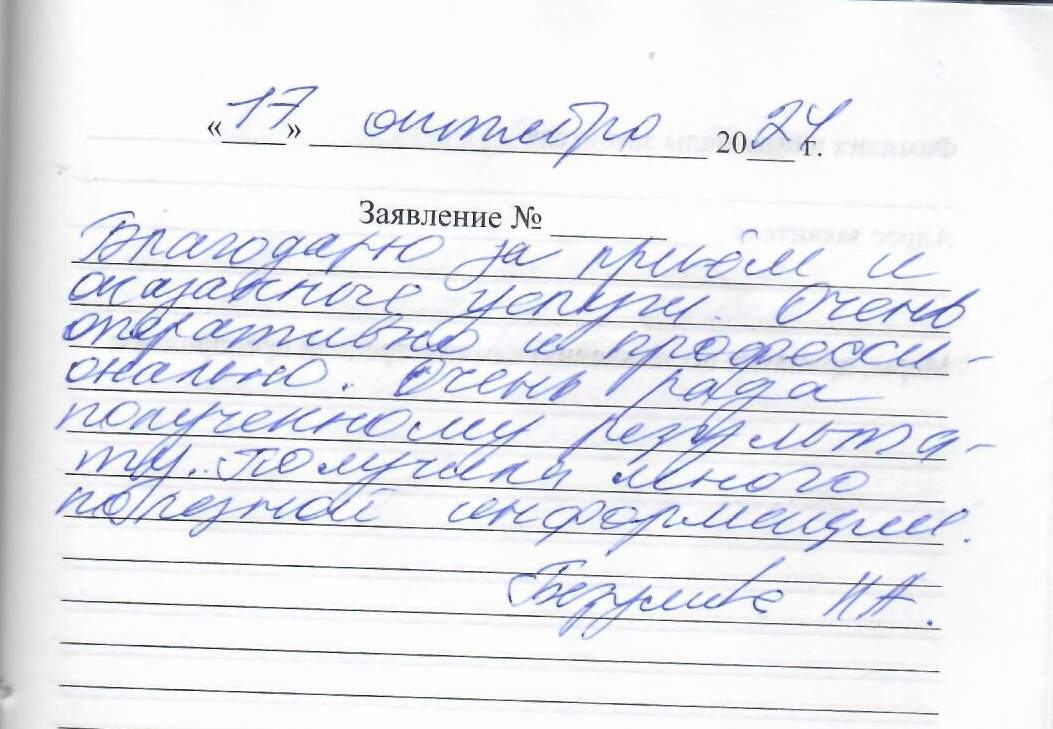 «17» октября 2024 г.
Заявление № ______
Благодарю за приём и
оказанные услуги. Очень
оперативно и професси-
онально. Очень рада
полученному результа-
ту. Получила много
полезной информации.
Н.А.